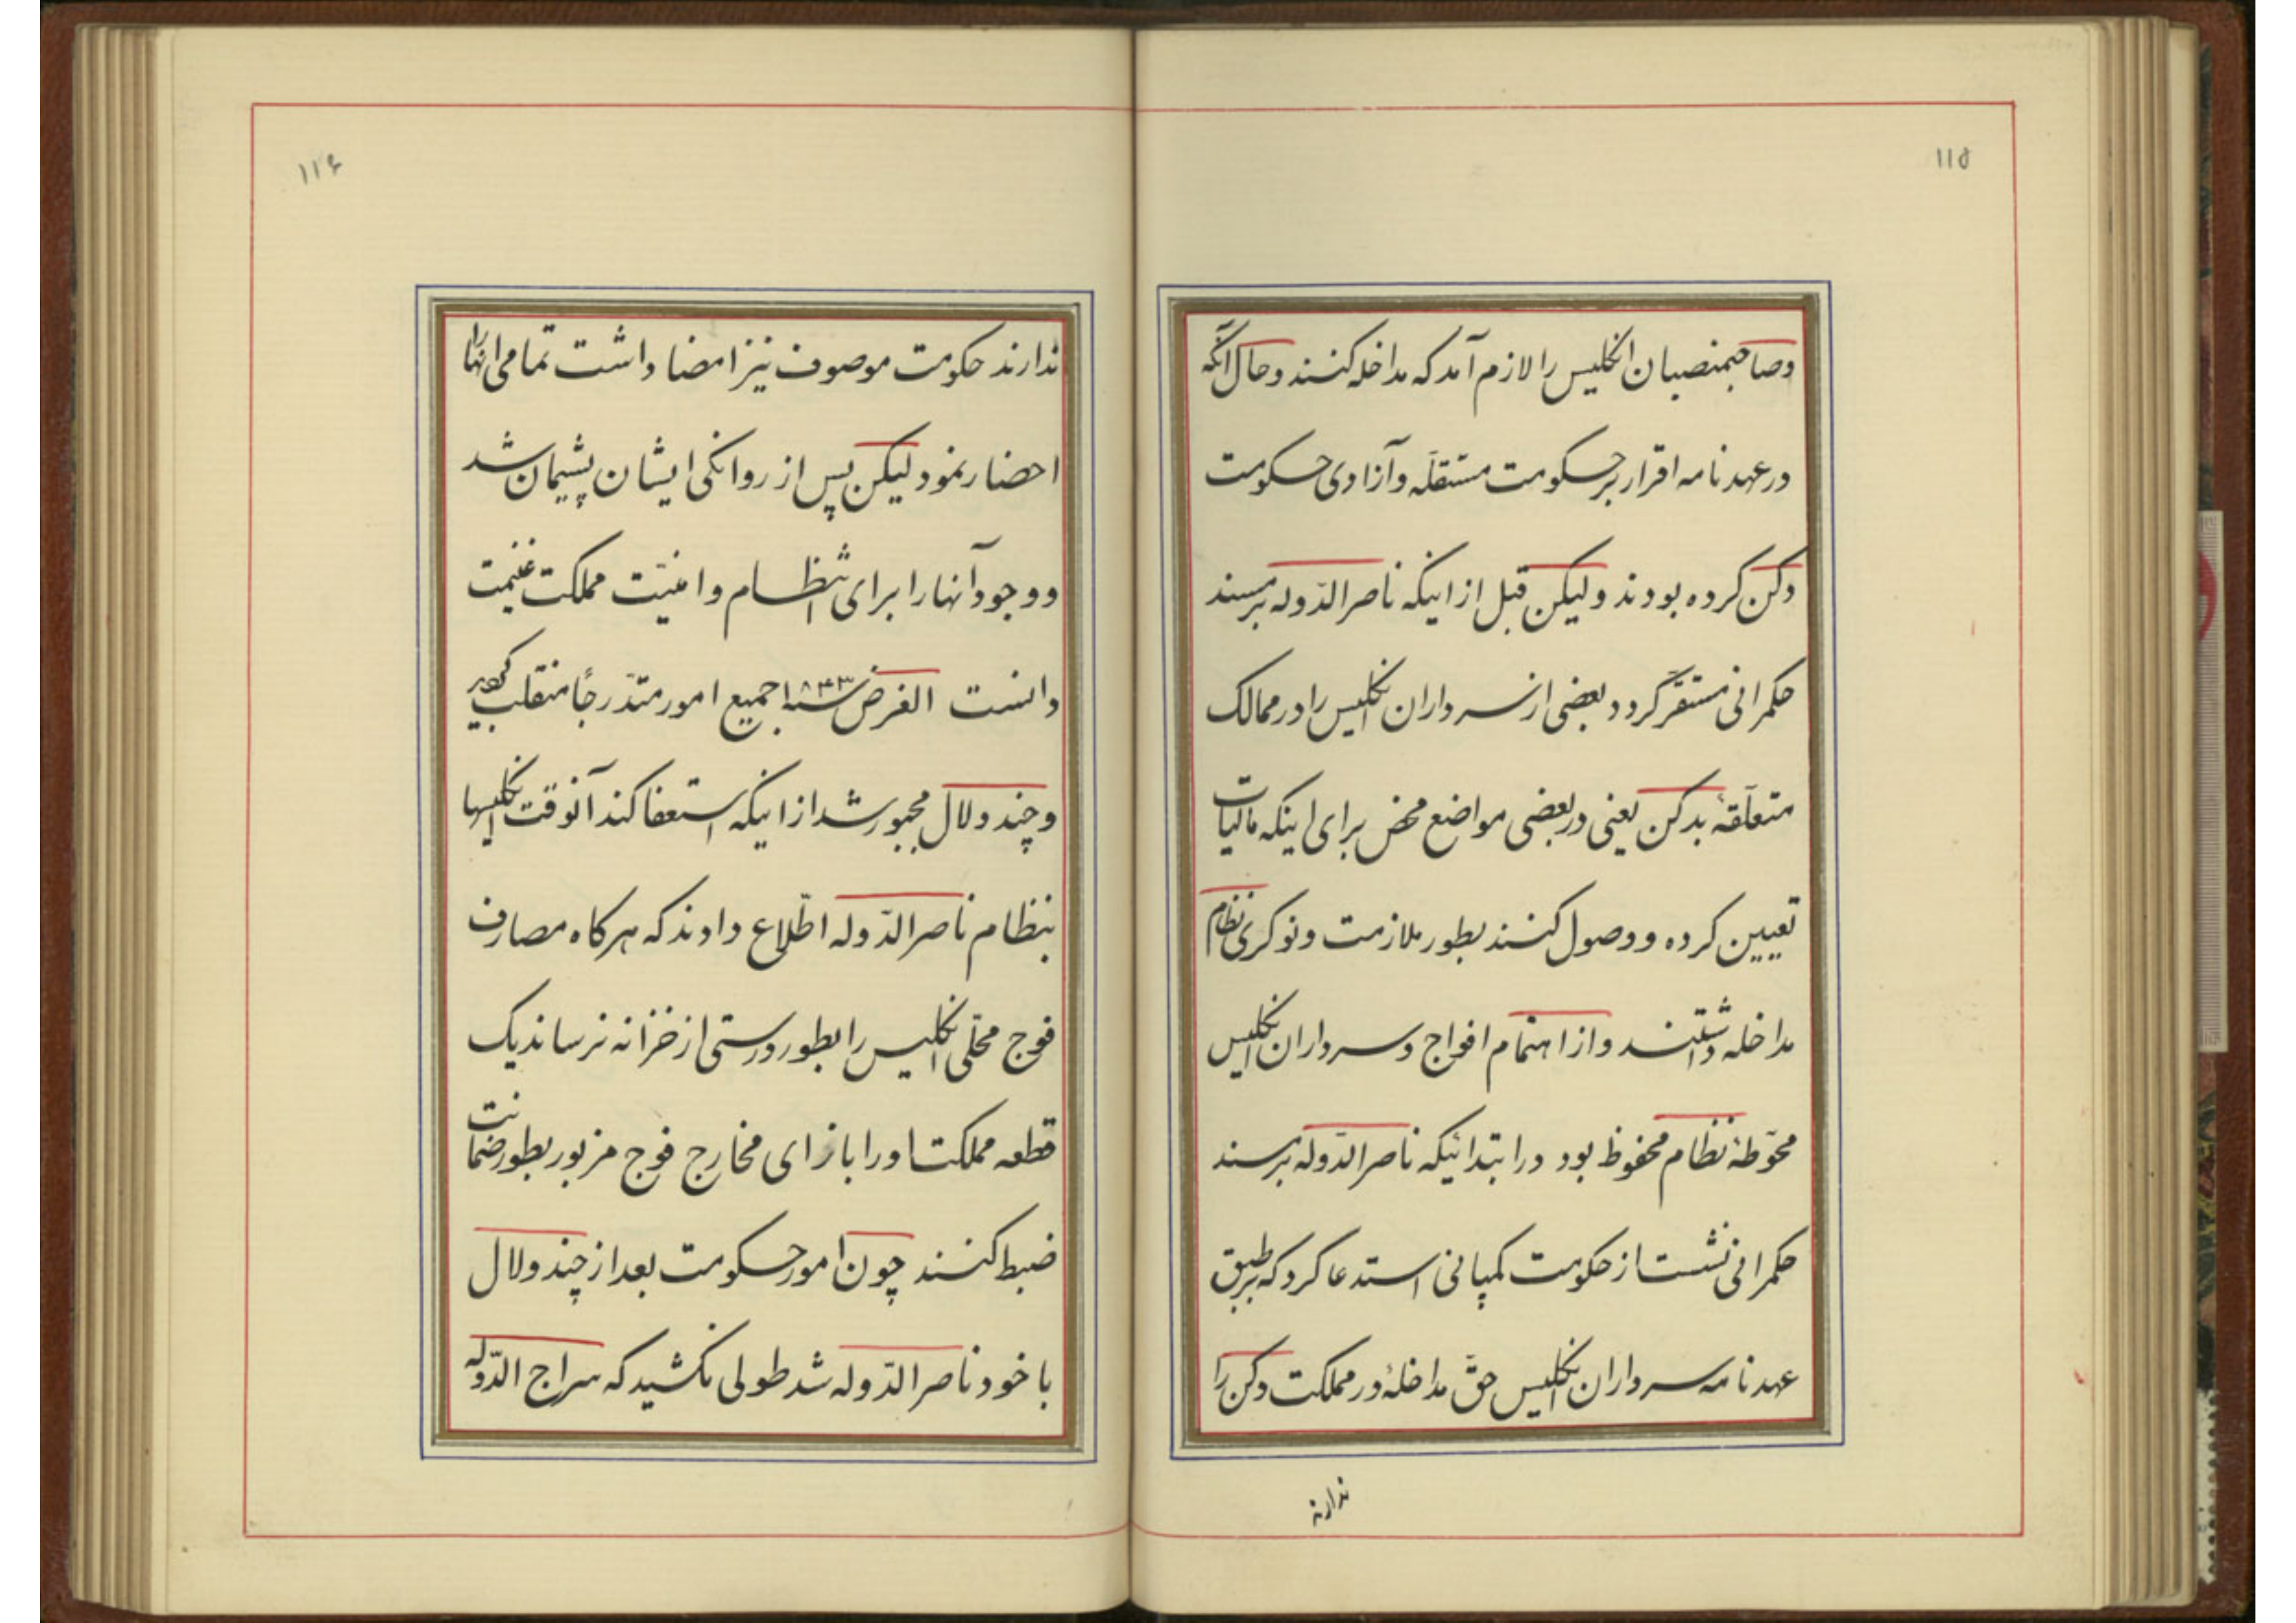 ۱۱۵
وصاحبمنصبان انکلیس را لازم آمد که مداخله کنند وحال آنکه
در عهد نامه اقرار بر حکومت مستقلّه و آزادی حکومت
دکن کرده بودند ولیکن قبل از اینکه ناصر الدّوله بر مسند
حکمرانی مستقرّ گردد بعضی از سرداران انکلیس را در ممالک
متعلّقهٔ بدکن یعنی در بعضی مواضع محض برای اینکه مالیات
تعیین کرده و وصول کنند بطور ملازمت و نوکری نظام
مداخله داشتند و از اهتمام افواج و سرداران انکلیس
محوّطهٔ نظام محفوظ بود در ابتدائیکه ناصر الدّوله بر مسند
حکمرانی نشست از حکومت کمپانی استدعا کرد که بر طبق
عهد نامه سرداران انکلیس حقّ مداخلهٔ در مملکت دکن را
ندارند
۱۱۶
ندارند حکومت موصوف نیز امضا داشت تمامی انها را
احضار نمود لیکن پس از روانکی ایشان پشیمان شد
و وجود آنها را برای انتظام و امنیّت مملکت غنیمت
دانست الغرض سنه ۱۸۴۳ جمیع امور متدّرجاً منقلب کردید
و چندولال مجبور شد از اینکه استعفا کند آنوقت انکلیسها
بنظام ناصر الدّوله اطّلاع دادند که هرکاه مصارف
فوج محلّی انکلیس را بطور درستی از خزانه نرساند یک
قطعه مملکت او را بازای مخارج فوج مزبور بطور ضمانت
ضبط کنند چون امور حکومت بعد از چندولال
با خود ناصر الدّوله شد طولی نکشید که سراج الدّوله